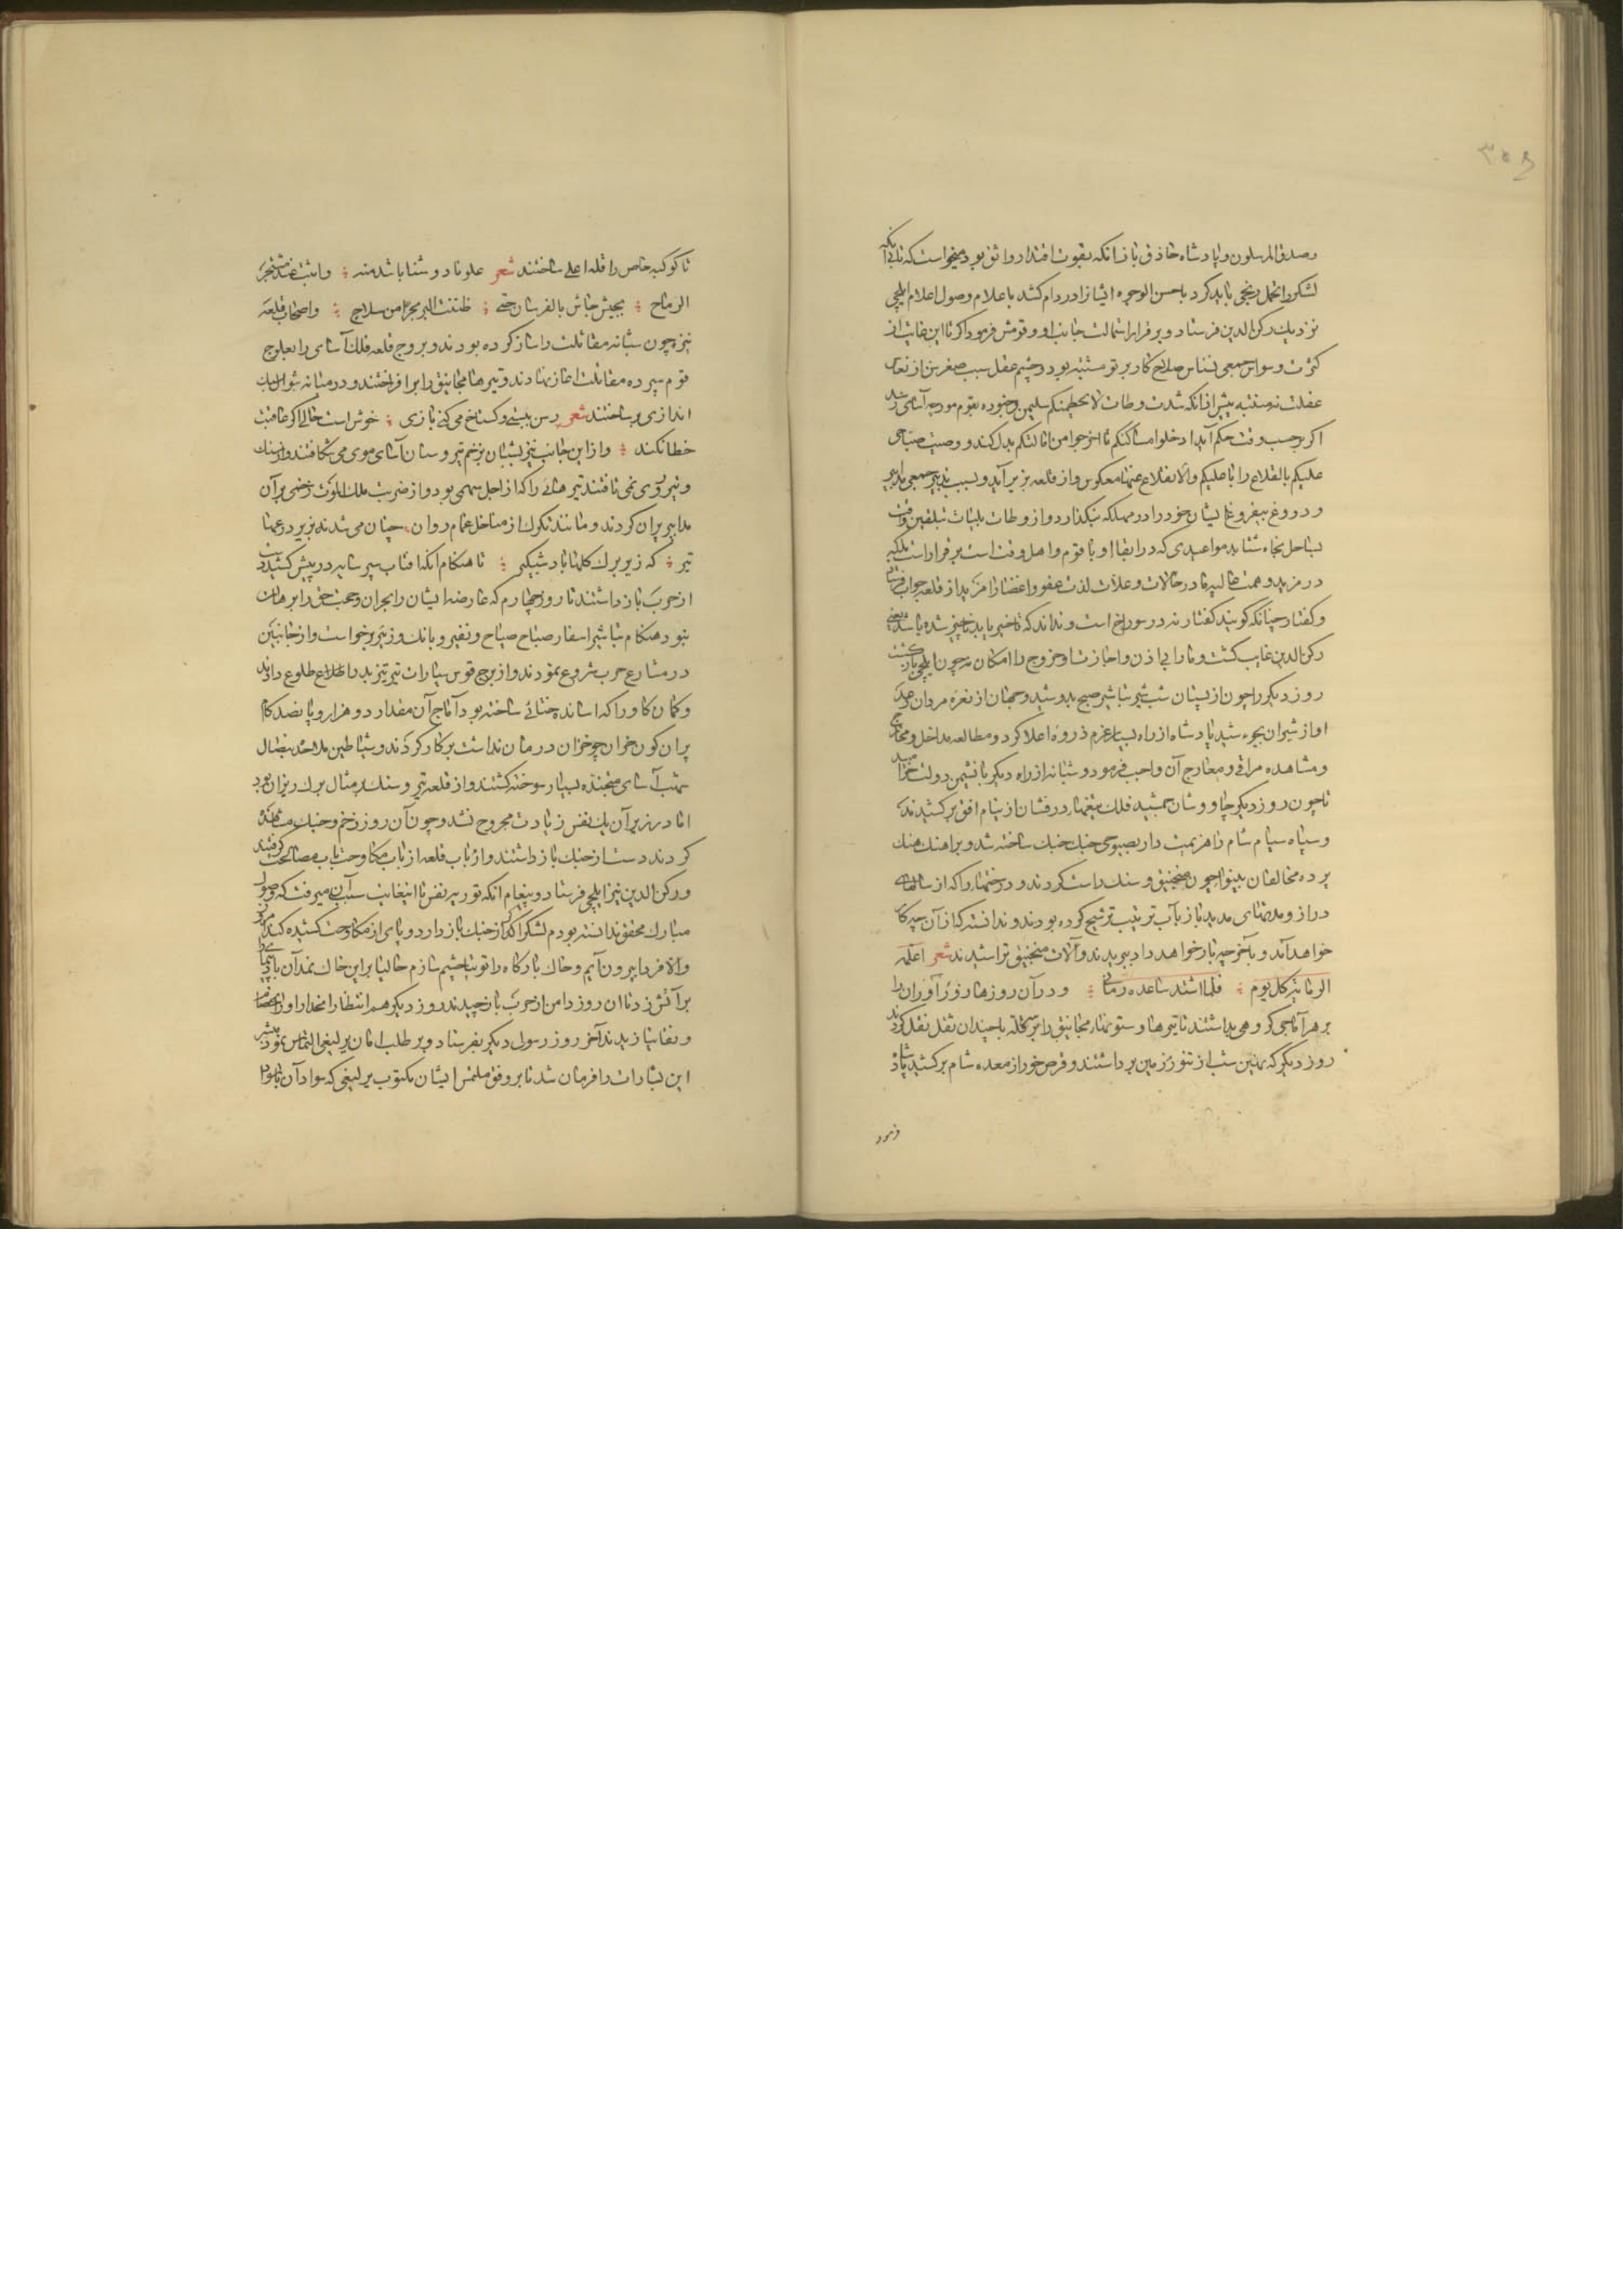 ۳۰۶
وصدق المرسلون و پادشاه حاذق باز آنکه بقوت اقتدار واثق بود میخواست که بی آنکه
لشکر را تحمل رنجی باید کرد باحسن الوجوه ایشانرا در دام کشد باعلام وصول اعلام ایلچی
نزدیک رکن الدین فرستاد و بر قرار استمالت جانب او و قومش فرمود اگر تا این غایت از
کثرت وسواس جمعی نسناس صلاح کار بر تو مشتبه بود و چشم عقل سبب صغر سن از نعاس
غفلت نه منتبه پیش از آنکه شدت وطات لا یحطمنکم سلیمن و جنوده بقوم مورچه آسای رسد
اگر بر حسب وقت حکم آیه ادخلوا مساکنکم تا اخرجوا من اماکنکم بدل کند و وصیت صباحی
علیکم بالقلاع را با علیکم والانقلاع عنها معکوس و از قلعه بزیر آید و بسبب تدبیر جمعی مدابیر
و دروغ بیفروغ ایشان خود را در مهلکه نیگذارد و از وطات بلیات
بساحل نجاه شتابد مواعیدی که در ابقاء او با قوم و اهل رفته است بر قرار است بلکه
در مزید و همت عالیه ما در حالات و علات لذت عفو و اغضا را مزید از قلعه جواب فرستاد
و گفتار چنانکه گویند کفتار نه در سوراخ است و نداند که ناخیز باید ناخیز شده باشد یعنی
رکن الدین غایب گشت و ما را بی اذن و اجازت او خروج را امکان نه چون ایلچی بازگشت
روز دیگر را چون از پستان شب شیر تباشیر صبح بدوشید و جهان از نعره مردان
آواز شیران بجوشید پادشاه از راه یسار عزم ذروه اعلا کرد و مطالعه مداخل و مخارج
و مشاهده مراقی و معارج آن واجب فرمود و شبانه از راه دیگر با نشیمن دولت خرامید
تا چون روز دیگر چاووشان جمشید فلک تیغهاء درفشان از نیام افق برکشیدند
و سپاه سیام شام را هزیمت دار بصبوحی جنگ چنگ ساخته شد و بر آهنگ هتک
پرده مخالفان بینوا چون منجنیق و سنگ راست کردند و درختها را که از سالهاء
دراز و مدتهای مدید باز بآب تربیت ترشیح کرده بودند و ندانسته که از آن چه کار
خواهد آمد و بآخر چه بار خواهد داد ببریدند و آلات منجنیق تراشیدند شعر اعلمه
الرمایة کل یوم ؛ فلما اشتد ساعده رمانی ؛ و در آن روزها زورآوران را
بر هر آماجی گروهی بداشتند تا تیرها و ستونهاء مجانیق را بر سر قله با چندان ثقل نقل کردند
روز دیگر که بهنین شب از تنور زمین برداشتند و قرص خور از معده شام برکشید پادشاه
فرمود
تا کوکبه خاص را قله اعلی ساختند شعر علونا دوشنا باشد منه ؛ واثبت عند مشتجر
الرماح ؛ بجیش جاش بالفرسان حتی ؛ ظننت البر بحرا من سلاح ؛ واصحاب قلعه
نیز چون شبانه مقاتلت را ساز کرده بودند و بروج قلعه فلک آسای را بعلوج
قوم سپرده مقاتلت آغاز نهادند و تیرها مجانیق را برافراختند و در میانه شوال سنگ
اندازی بر ساختند شعر رسن بستی و گستاخ می کنی بازی ؛ خوش است حالی اگر عاقبت
خطا نکند ؛ و از این جانب نیز ایشان بزخم تیر و سنان آسای موی می شکافتند و از سنگ
و تیر روی نمی تافتند تیرهائی را که از اجل سهمی بود و از ضربت ملک الموت زخمی بر آن
مدابیر پران کردند و مانند تگرگ از مناخل غمام روان ؛ چنان می شدند بزیر درعها
تیر ؛ که زیر برگ گلها باد شبگیر ؛ تا هنگام آنکه آفتاب سپر سایه در پیش کشید دست
از حرب باز داشتند تا روز چهارم که عارضه ایشان را بحران و حجت حق را برهان
بنود هنگام تباشیر اسفار صباح صیاح و نفیر و بانگ و زئیر برخواست و از جانبین
در مشارع حرب شروع نمودند و از برج قوس سیارات تیر تیز بدر اطلاع طلوع دادند
و کمان گاو را که استاد ختائی ساخته بود آماج آن مقدار دو هزار و پانصد گام
بر آن کون خران چو خزان درمان نداشت بر کار کردند و شیاطین ملاحده بنصال
شهب آسای منجنده بسیار سوخته گشتند و از قلعه تیر و سنگ بر مثال برگ ریزان بود
اما در زیر آن یک نفس زیادت مجروح نشد و چون آن روز زخم و جنگ مشاهده
کردند دست از جنگ باز داشتند و ارباب قلعه از باب مکاوحت باب مصالحت گرفتند
و رکن الدین نیز ایلچی فرستاد و پیغام آنکه توریه نفس تا اینغایت سبب آن میرفت که وصول
مبارک محقق ندانسته بودم لشکر اگر از جنگ باز دارد و پای از مکاوحت کشیده کند امروز
والا فردا بیرون آیم و خاک بارگاه را توتیا چشم سازم حالیا براین خاک نمد آن باسها را
بر آتش زد تا آن روز دامن از حرب باز چیدند روز دیگر هم انتظار انحدار او را
و نفاسا زیدند آخر روز رسولی دیگر بفرستاد و بر طلب امان یرلیغی التماس نمود مبشر
این بشارات را فرمان شد تا بر وفق ملتمس ایشان مکتوب یرلیغی که سواد آن با سواد